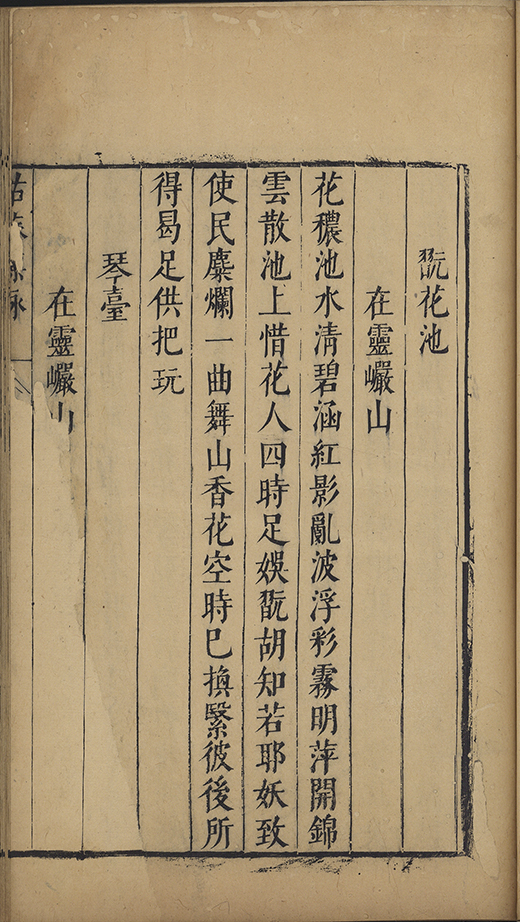 翫花池
在靈巗山
花穠池水清碧涵紅影亂波浮彩霧明萍開錦
雲散池上惜花人四時足娛翫胡知若耶妖致
使民麋爛一曲舞山香花空時巳換繄彼後所
得曷足供把玩
琴臺
在靈巗山